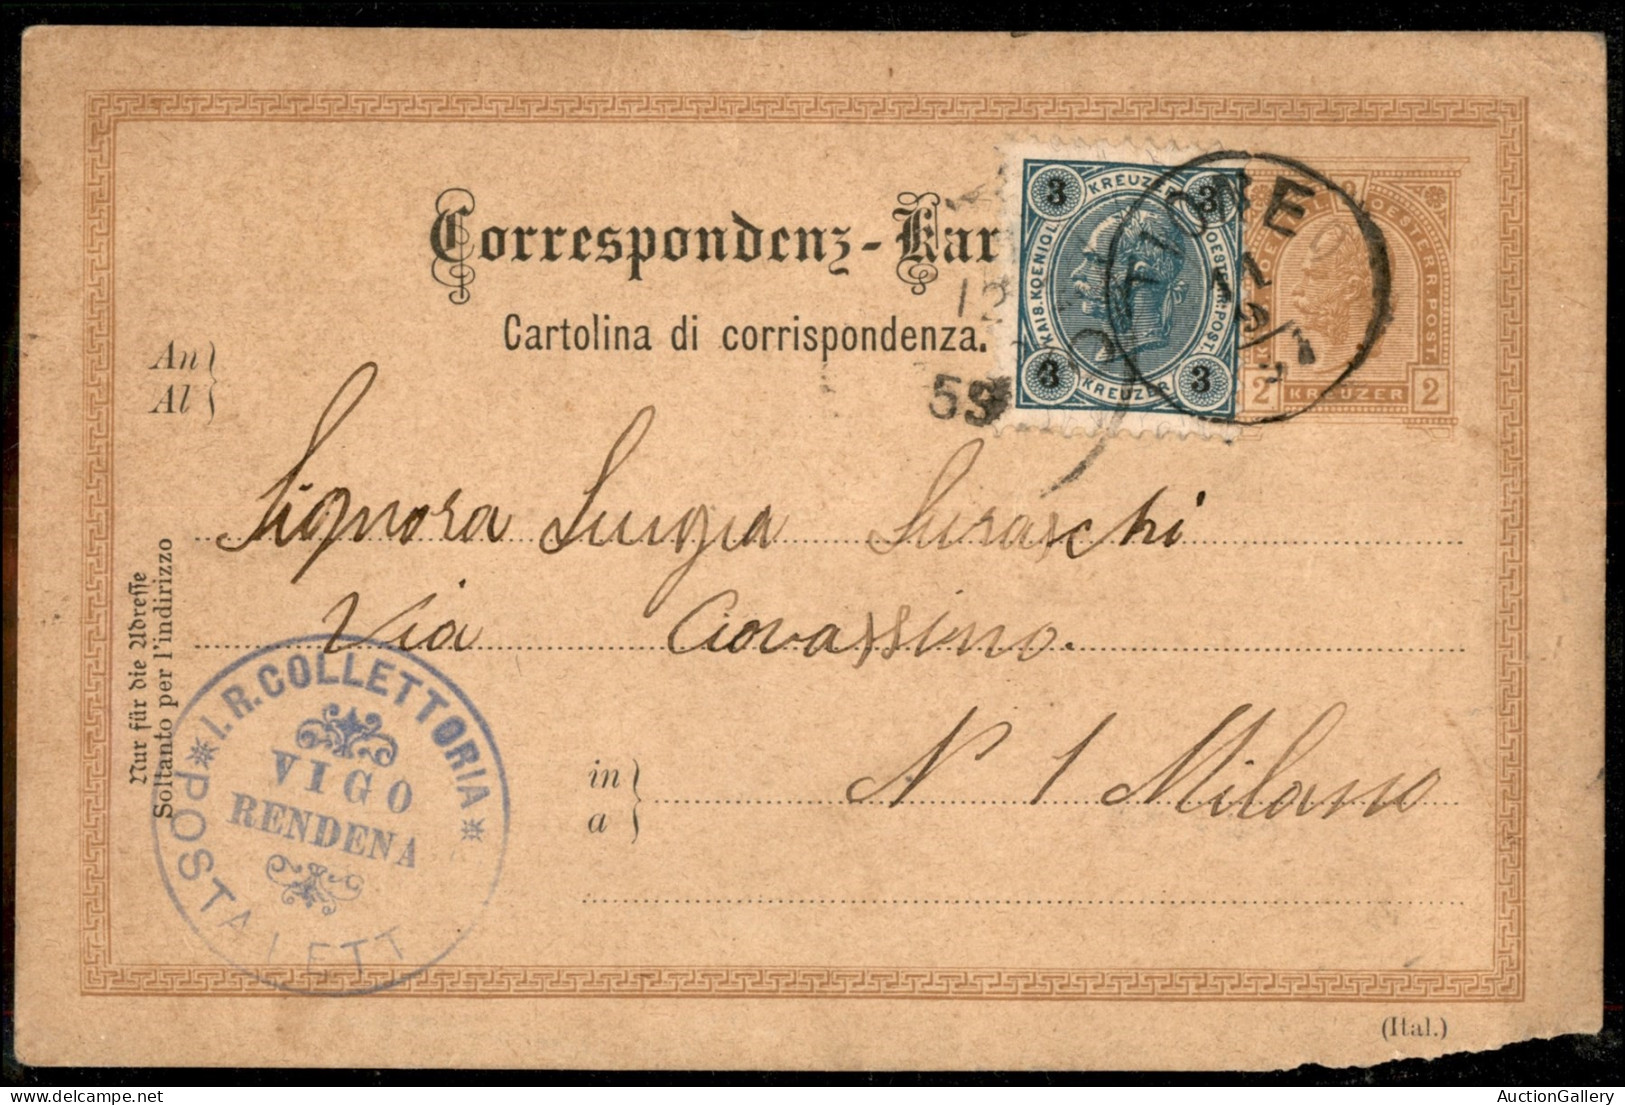 Correspondenz-Kar
Cartolina di corrispondenza.
An
Al
3 KREUZER 3
KAIS. KOENIGL. OESTERR. POST.
3 KREUZER 3
TIONE
11
OESTERR. POST
2 KREUZER 2
12
59
Signora Luigia Suraschi
Via Cavassino.
in
a
N 1 Milano
Nur für die Adresse
Soltanto per l'indirizzo
I. R. COLLETTORIA
VIGO
RENDENA
POSTA LETT
(Ital.)
AuctionGallery